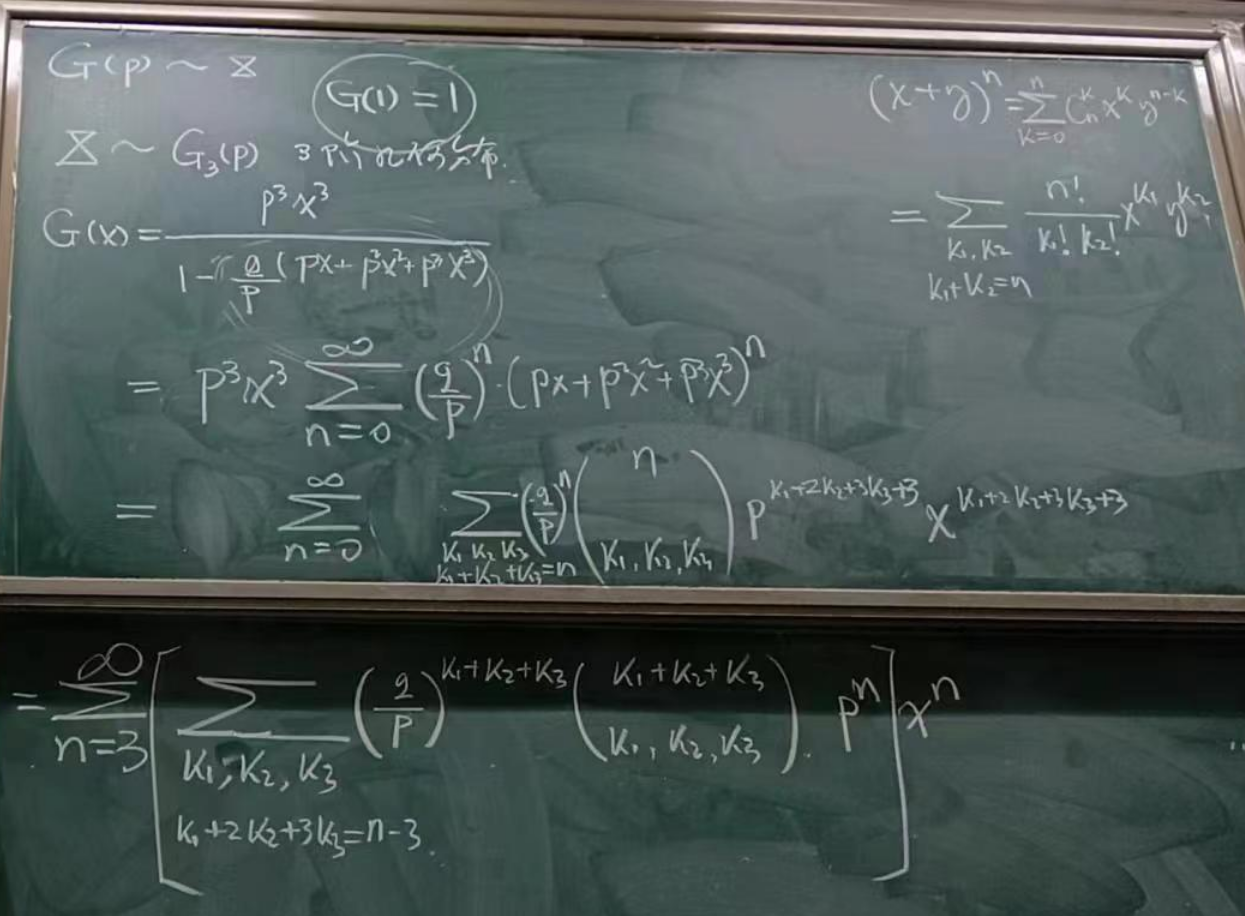 G(p) ~ X
G(1) = 1
X ~ G₃(p) 3阶几何分布.
G(x) = \frac{p³x³}{1 - \frac{q}{p}(px + p²x² + p³x³)}
= p³x³ \sum_{n=0}^{∞} (\frac{q}{p})^n · (px + p²x² + p³x³)^n
= \sum_{n=0}^{∞} \sum_{K₁ K₂ K₃, K₁+K₂+K₃=n} (\frac{q}{p})^n \binom{n}{K₁, K₂, K₃} p^{K₁+2K₂+3K₃+3} x^{K₁+2K₂+3K₃+3}
(x+y)^n = \sum_{K=0}^{n} C_n^K x^K y^{n-K}
= \sum_{K₁, K₂, K₁+K₂=n} \frac{n!}{K₁! K₂!} x^{K₁} y^{K₂}
= \sum_{n=3}^{∞} [ \sum_{K₁, K₂, K₃, K₁+2K₂+3K₃=n-3} (\frac{q}{p})^{K₁+K₂+K₃} \binom{K₁+K₂+K₃}{K₁, K₂, K₃} · p^n ] x^n